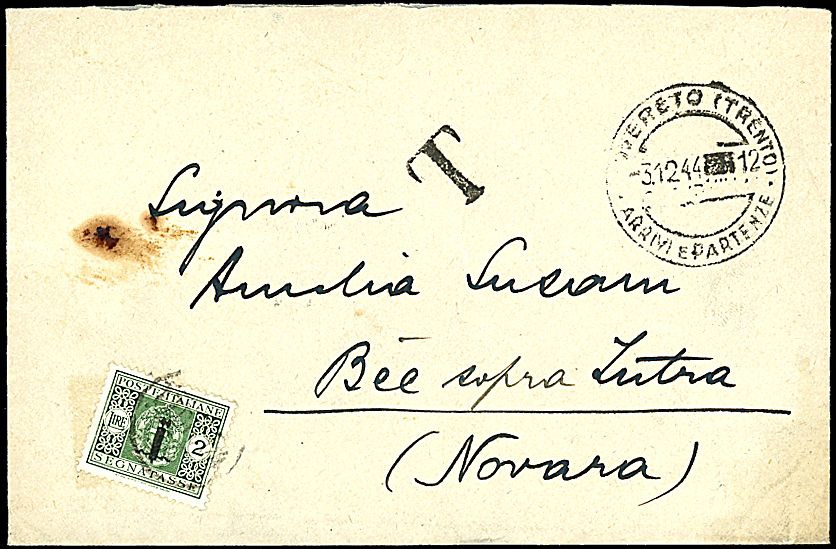 T
OVERETO (TRENTO)
-3.12.44 12
ARRIVI E PARTENZE
Signora
Amelia
Bèe sopra Intra
(Novara)
POSTE ITALIANE
LIRE 2
SEGNATASSE